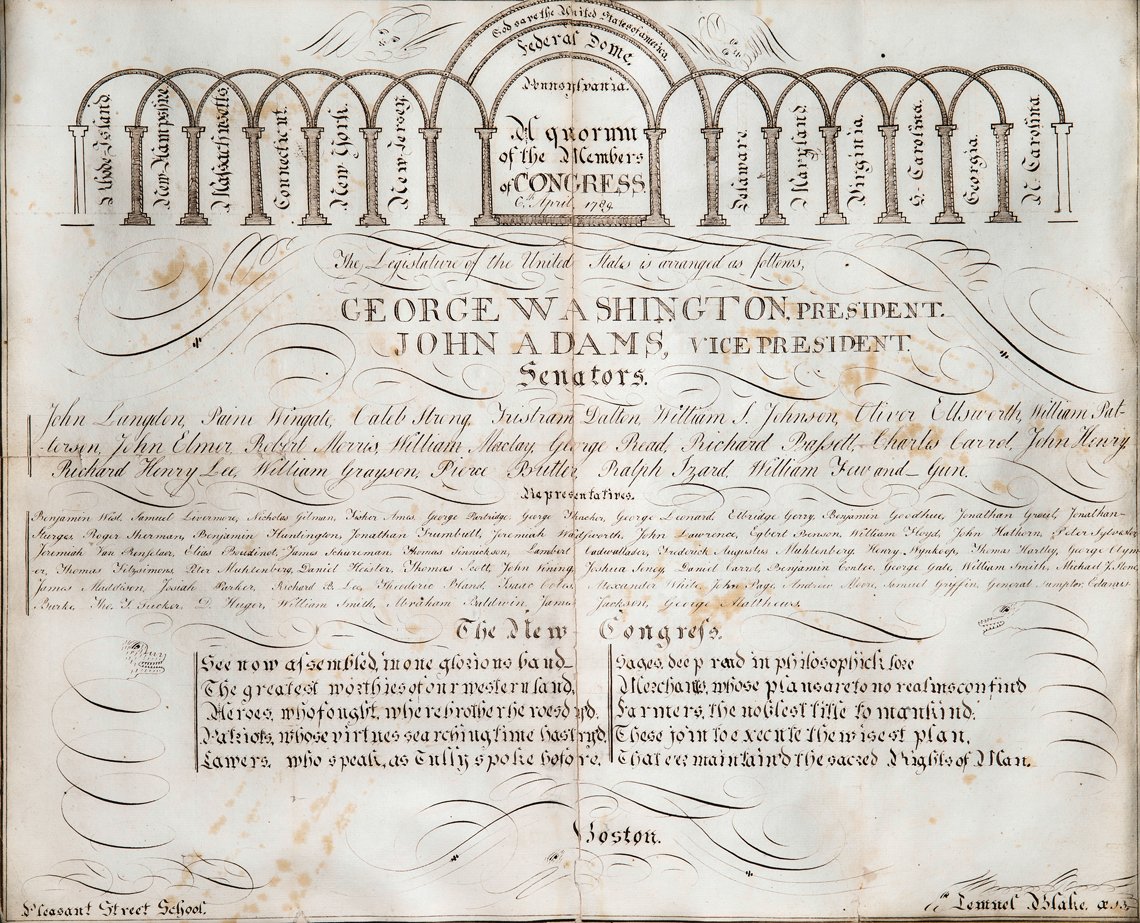 God save the United States of america.
Federal Dome.
Pennsylvania.
A quorum
of the Members
of CONGRESS.
6th April, 1789.
Rhode-Island.
New-Hampshire
Massachusetts.
Connecticut.
New York.
New-Jersey.
Delaware.
Maryland.
Virginia.
S. Carolina.
Georgia.
N. Carolina.
The Legislature of the United States is arranged as follows,
GEORGE WASHINGTON, PRESIDENT.
JOHN ADAMS, VICE PRESIDENT.
Senators.
John Langdon, Paine Wingate, Caleb Strong, Tristram Dalton, William S. Johnson, Oliver Ellsworth, William Pat-
terson, John Elmer, Robert Morris, William Maclay, George Read, Richard Bassett, Charles Carrol, John Henry,
Richard Henry Lee, William Grayson, Pierce Butler, Ralph Izard, William Few and Gun.
Representatives.
Benjamin West, Samuel Livermore, Nicholas Gilman, Fisher Ames, George Partridge, George Thacher, George Leonard, Elbridge Gerry, Benjamin Goodhue, Jonathan Grout, Jonathan-
Sturges, Roger Sherman, Benjamin Huntington, Jonathan Trumbull, Jeremiah Wadsworth, John Lawrence, Egbert Benson, William Floyd, John Hathorn, Peter Sylvester
Jeremiah Van Renselaer, Elias Boudinot, James Schureman, Thomas Sinnickson, Lambert Cadwallader, Frederick Augustus Muhlenberg, Henry Wynkoop, Thomas Hartley, George Clym-
er, Thomas Fitzsimons, Peter Muhlenberg, Daniel Heister, Thomas Scott, John Vining, Joshua Seney, Daniel Carrol, Benjamin Contee, George Gale, William Smith, Michael J. Stone,
James Maddison, Josiah Parker, Richard B. Lee, Theodore Bland, Isaac Coles, Alexander White, John Page, Andrew Moore, Samuel Griffin, General Sumpter, Edanus
Burke, Tho. T. Tucker, D. Huger, William Smith, Abraham Baldwin, James Jackson, George Matthews.
The New Congress.
See now assembled, in one glorious band
The greatest worthies of our western land,
Heroes, who fought, where brother heroes
Patriots, whose virtues searching time has
Lawers, who speak, as Tully spoke before,
Sages, deep read in philosophick lore
Merchants, whose plans are to no realms confin'd
Farmers, the noblest title to mankind;
These join to execute the wisest plan,
That e'er maintain'd the sacred Rights of Man.
Boston.
Pleasant Street School.
Lemuel Blake,